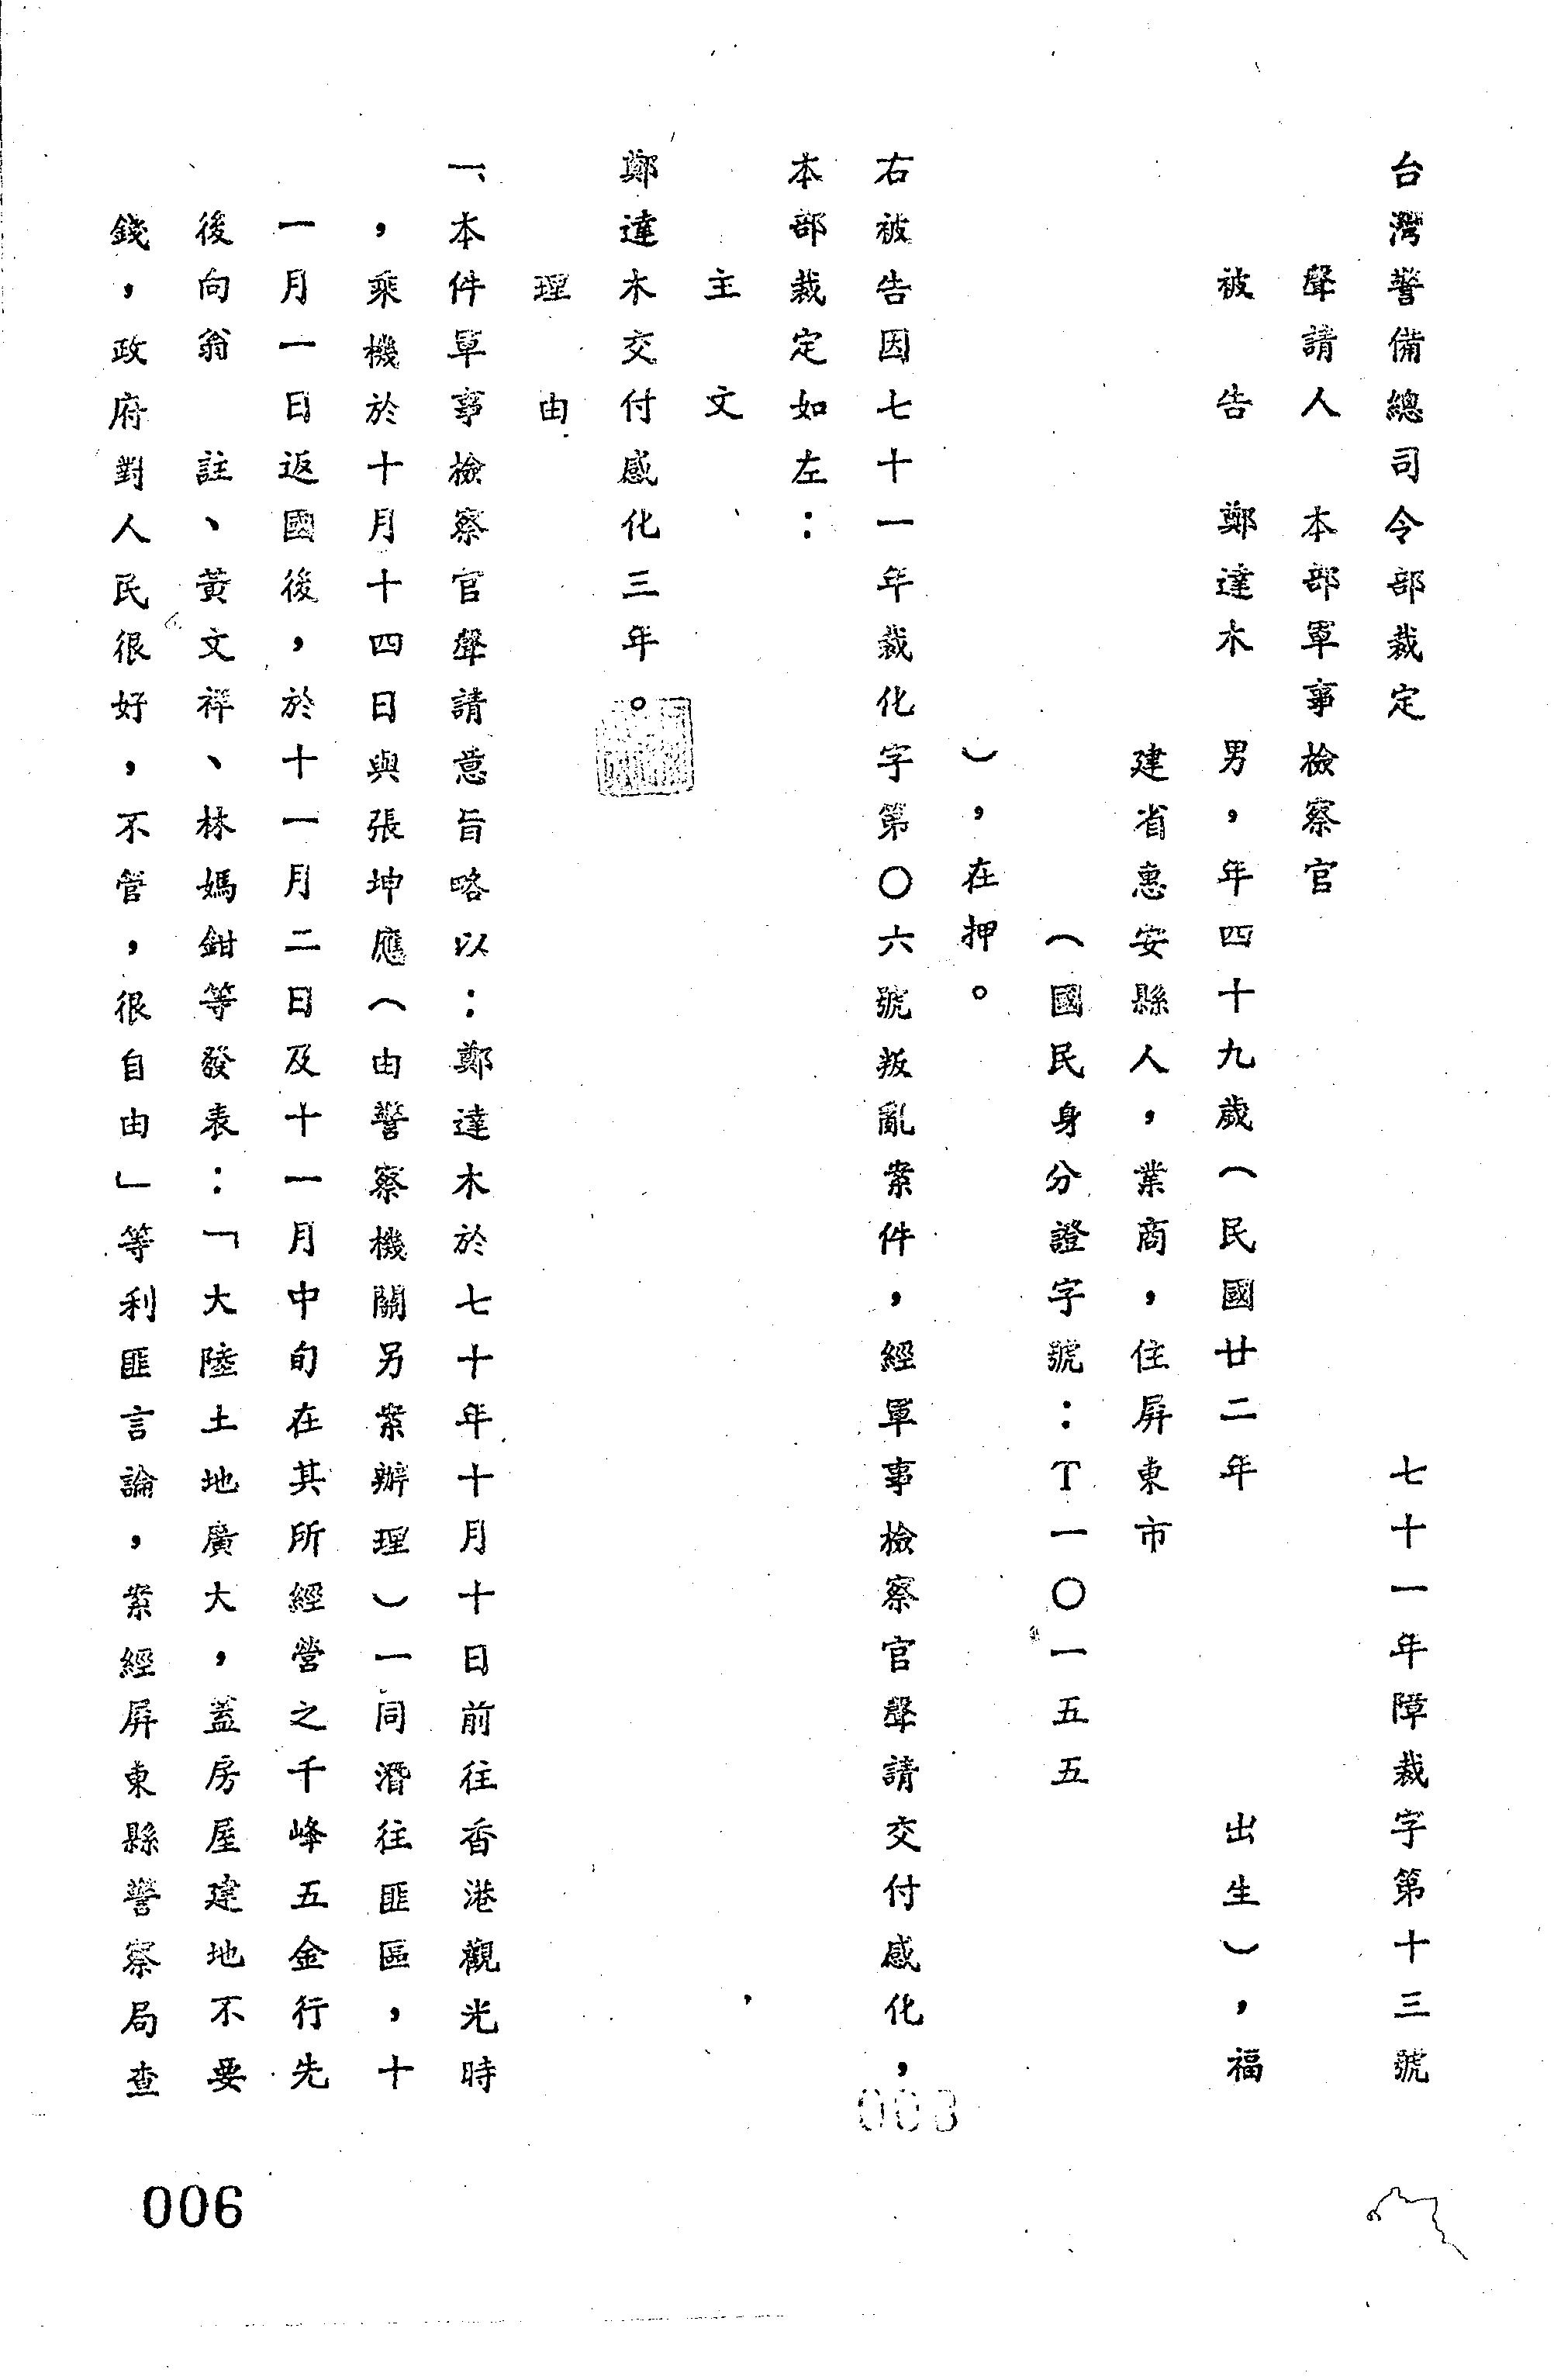 台灣警備總司令部裁定　七十一年障裁字第十三號
聲請人　本部軍事檢察官
被告　鄭達木　男，年四十九歲（民國廿二年　出生），福
建省惠安縣人，業商，住屏東市
（國民身分證字號：T一〇一五五
），在押。
右被告因七十一年裁化字第〇六號叛亂案件，經軍事檢察官聲請交付感化，
本部裁定如左：
主文
鄭達木交付感化三年。
理由
一、本件軍事檢察官聲請意旨略以：鄭達木於七十年十月十日前往香港觀光時
，乘機於十月十四日與張坤應（由警察機關另案辦理）一同潛往匪區，十
一月一日返國後，於十一月二日及十一月中旬在其所經營之千峰五金行先
後向翁　註、黃文祥、林媽鉗等發表：「大陸土地廣大，蓋房屋建地不要
錢，政府對人民很好，不管，很自由」等利匪言論，案經屏東縣警察局查
003
006